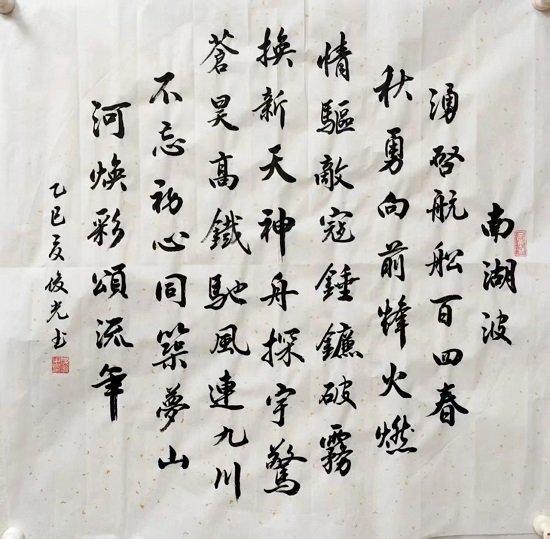 南湖波
湧啓航船百四春
秋勇向前烽火燃
情驅敵寇錘鐮破霧
換新天神舟探宇驚
蒼昊高鐵馳風連九川
不忘初心同築夢山
河煥彩頌流年
乙巳夏俊光书